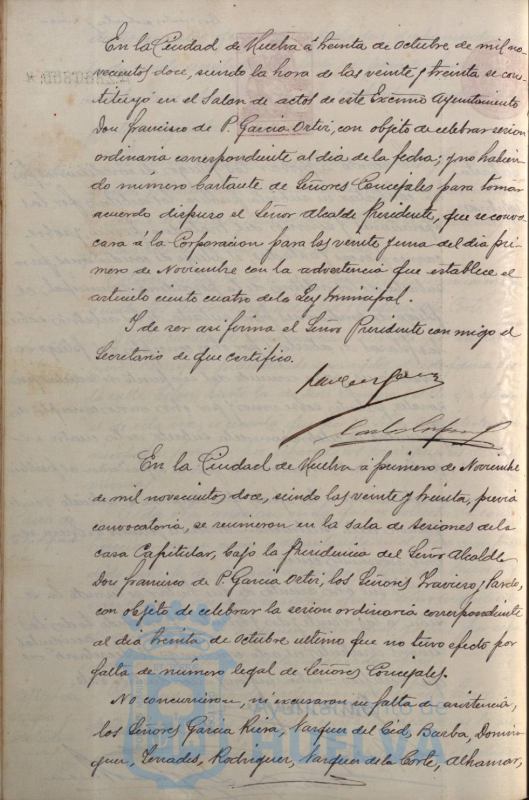 En la Ciudad de Huelva á treinta de Octubre de mil no-
vecientos doce, siendo la hora de las veinte y treinta se cons-
tituyó en el Salon de actos de este Excmo Ayuntamiento
Don Francisco de P. Garcia Ortiz, con objeto de celebrar sesion
ordinaria correspondiente al dia de la fecha; y no habien-
do número bastante de Señores Concejales para tomar
acuerdo dispuso el Señor Alcalde Presidente, que se convo-
cara á la Corporacion para las veinte y una del dia pri-
mero de Noviembre con la advertencia que establece el
articulo ciento cuatro de la Ley Municipal.
Y de ser asi firma el Señor Presidente con migo el
Secretario de que certifico.
En la Ciudad de Huelva á primero de Noviembre
de mil novecientos doce, siendo las veinte y treinta, previa
convocatoria, se reunieron en la sala de sesiones de la
casa Capitular, bajo la Presidencia del Señor Alcalde
Don Francisco de P. Garcia Ortiz, los Señores Traviero y Pardo,
con objeto de celebrar la sesion ordinaria correspondiente
al dia treinta de Octubre ultimo que no tuvo efecto por
falta de número legal de Señores Concejales.
No concurrieron, ni excusaron su falta de asistencia,
los Señores Garcia Riera, Vazquez del Cid, Barba, Domin-
guez, Terrades, Rodriguez, Vazquez de la Corte, Alhamar,
HUELVA